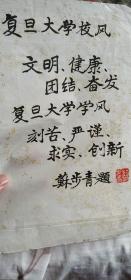 复旦大学校风
文明、健康、
团结、奋发
复旦大学学风
刻苦、严谨、
求实、创新
苏步青题